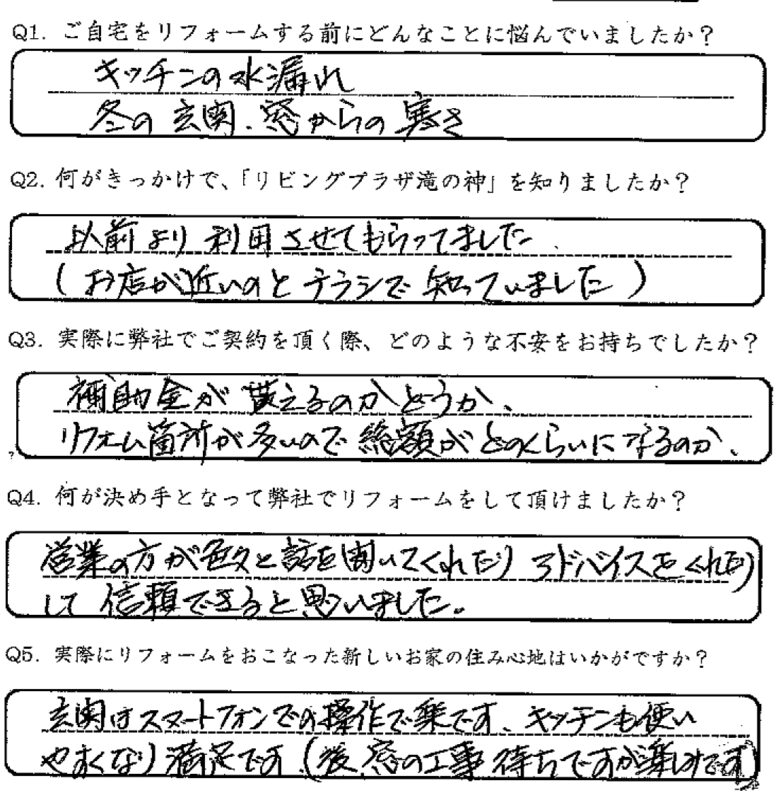 Q1. ご自宅をリフォームする前にどんなことに悩んでいましたか？
キッチンの水漏れ
冬の玄関、窓からの寒さ
Q2. 何がきっかけで、「リビングプラザ滝の神」を知りましたか？
以前より利用させてもらってました
(お店が近いのとチラシで知っていました)
Q3. 実際に弊社でご契約を頂く際、どのような不安をお持ちでしたか？
補助金が貰えるのかどうか、
リフォーム箇所が多いので総額がどのくらいになるのか、
Q4. 何が決め手となって弊社でリフォームをして頂けましたか？
営業の方が色々と話を聞いてくれたり アドバイスをくれたり
して信頼できると思いました。
Q5. 実際にリフォームをおこなった新しいお家の住み心地はいかがですか？
玄関はスマートフォンでの操作で楽です、キッチンも使い
やすくなり満足です(後、窓の工事待ちですが楽しみです)